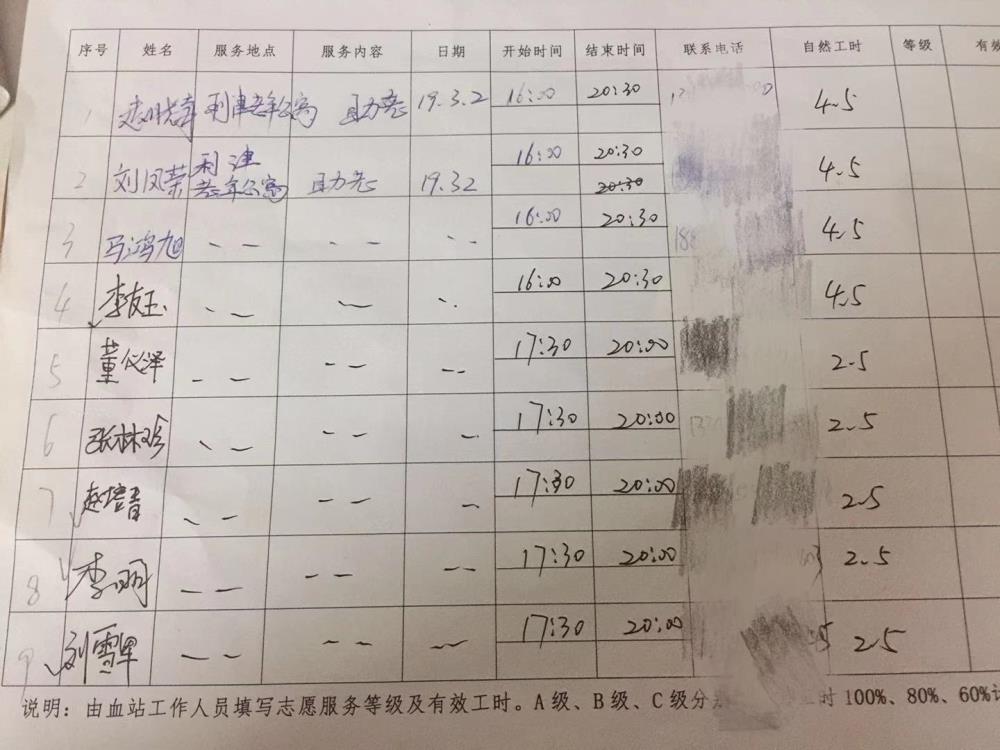 序号 姓名 服务地点 服务内容 日期 开始时间 结束时间 联系电话 自然工时 等级 有效
1 利津老年公寓 助老 19.3.2 16:00 20:30 4.5
2 刘凤荣 利津 老年公寓 助老 19.3.2 16:00 20:30 20:30 4.5
3 马鸿旭 – – – – – – 16:00 20:30 188 4.5
4 李友玉 – – – – 16:00 20:30 4.5
5 董 泽 – – – – – – 17:30 20:00 2.5
6 张林珍 – – – – – 17:30 20:00 2.5
7 赵培 – – – – – 17:30 20:00 2.5
8 李明 – – – – – – 17:30 20:00 2.5
9 刘雪 – – – – – – 17:30 20:00 5 2.5
说明：由血站工作人员填写志愿服务等级及有效工时。A级、B级、C级分 时100%、80%、60%计